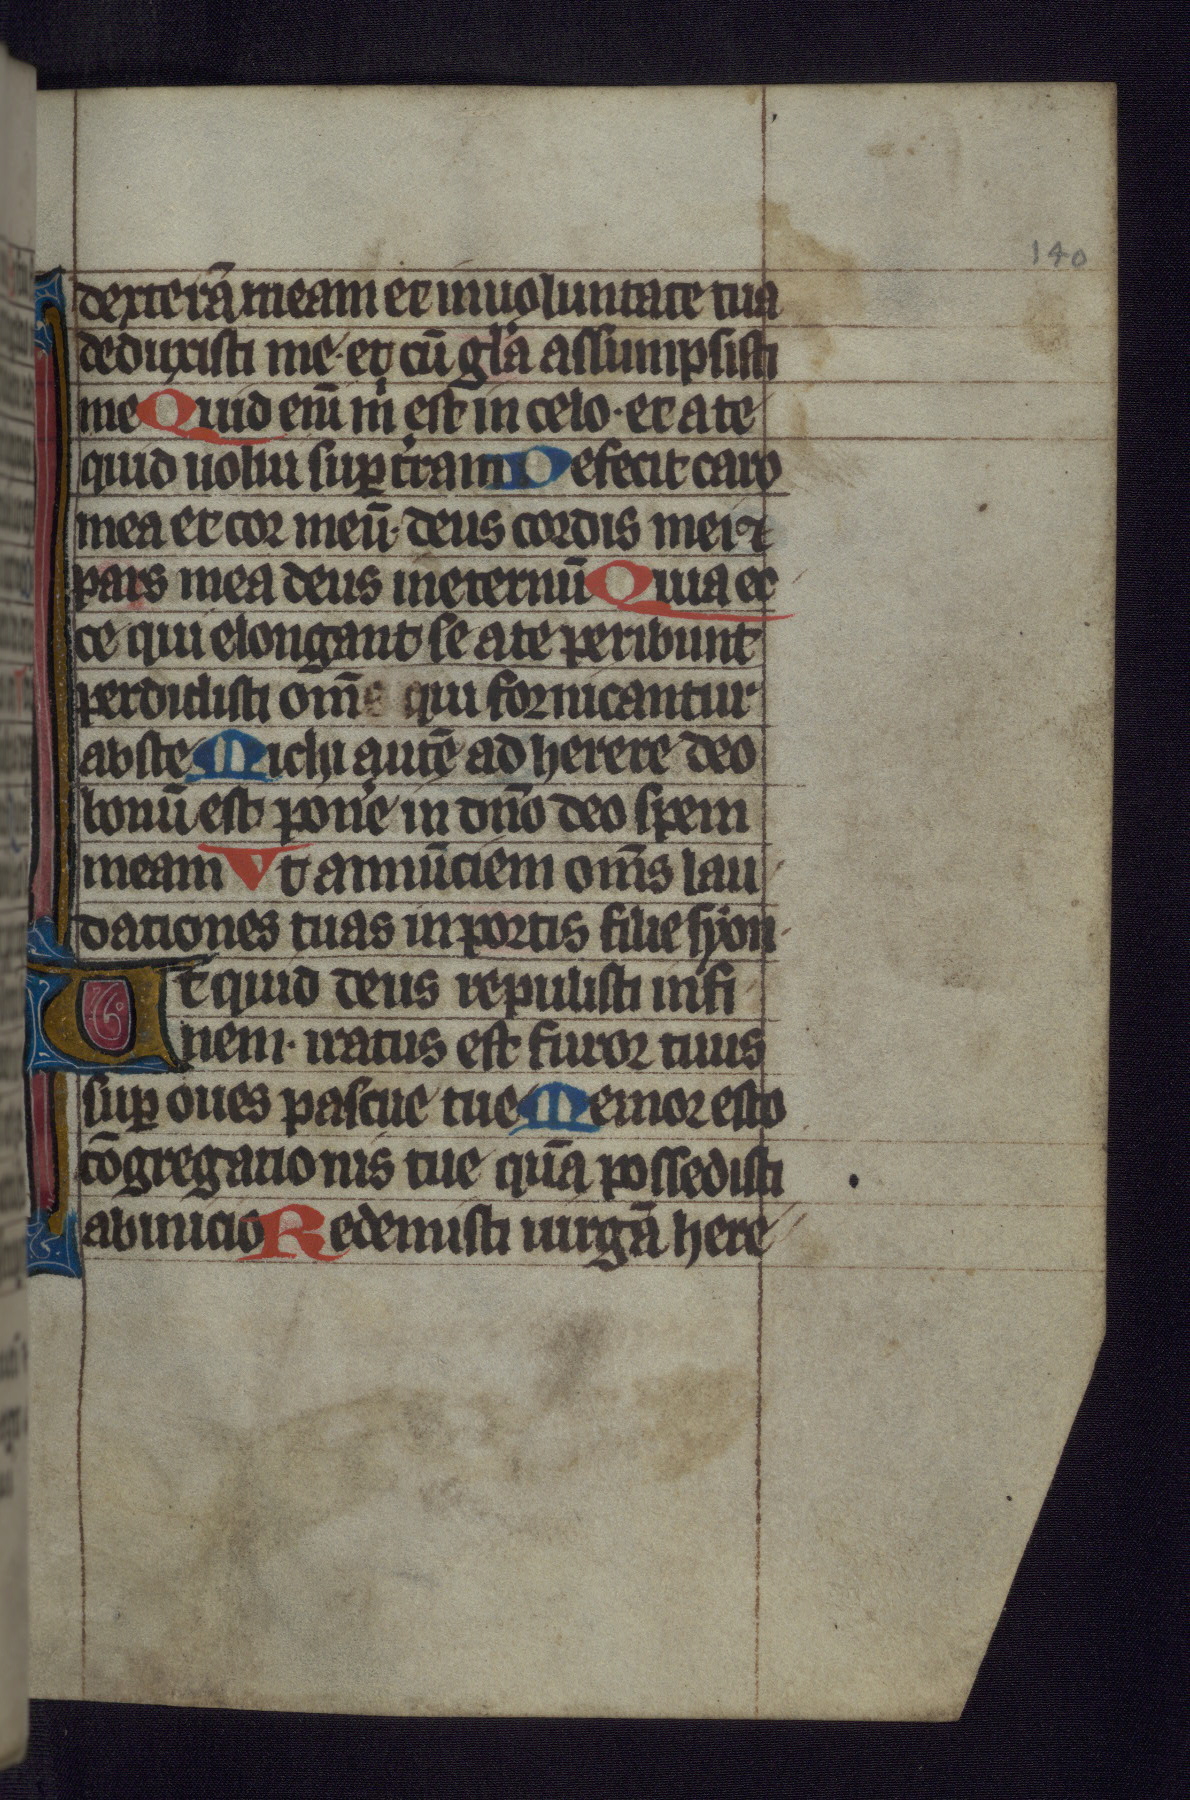 140
dexterā meam et in uoluntate tua
deduxisti me· et cū gl'a assumpsisti
me Quid eni̅ m̍ est in celo· et a te
quid uolui sup̲ t̍ram Defecit caro
mea et cor meū· deus cordis mei ⁊
pars mea deus in eternū Quia ec
ce qui elongant se a te peribunt
perdidisti om̄s qui fornicantur
abs te Michi autē ad herere deo
bonū est pon̍e in dn̄o deo spem
meam Vt annūciem om̄s lau
dationes tuas in portis filie syon
Ut quid deus repulisti in fi
nem· iratus est furor tuus
sup̲ oues pascue tue Memor esto
cōgregationis tue quā possedisti
ab inicio Redemisti uirgā here